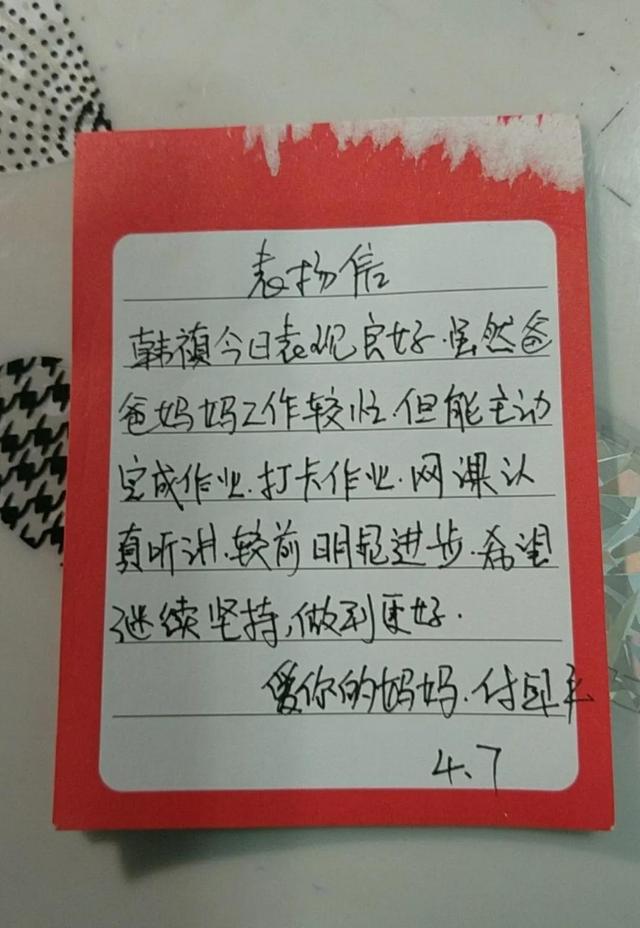 表扬信
韩禛今日表现良好.虽然爸
爸妈妈工作较忙.但能主动
完成作业.打卡作业.网课认
真听讲.较前明显进步.希望
继续坚持,做到更好.
爱你的妈妈.付
4.7